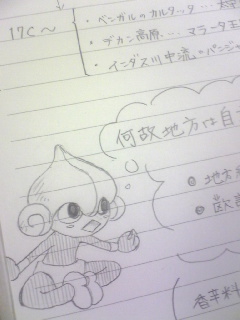 17C～
・ベンガルのカルカッタ…
・デカン高原… マラータ王
・インダス川中流のパンジャ
何故地方は自
地方
欧
香辛料